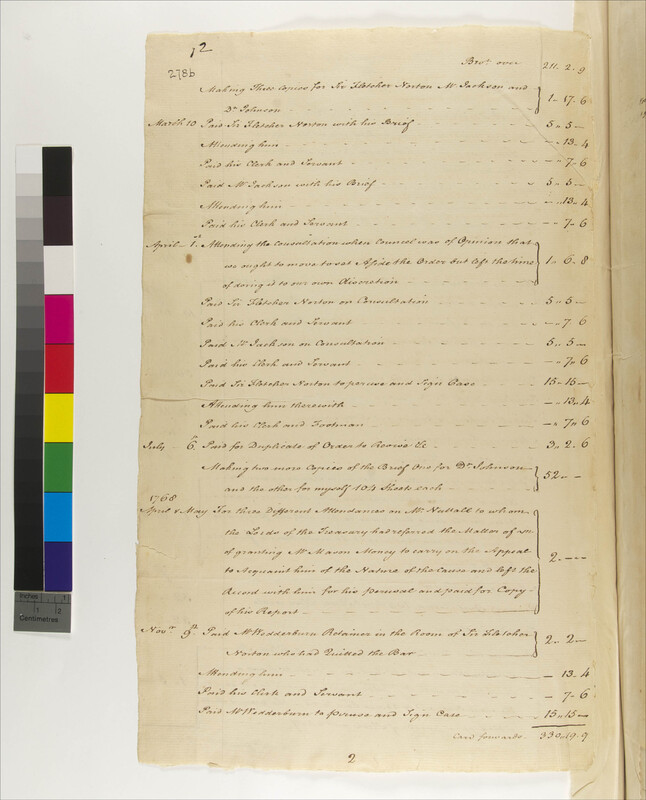 12
278b
Bro.t over 211. 2. 9
Making three Copies for Sir Fletcher Norton Mr Jackson and
Dr Johnson 1 - 17. 6
March 10 Paid Sir Fletcher Norton with his Brief 5 " 5 -
Attending him - 13. 4
Paid his Clerk and Servant - 7. 6
Paid Mr Jackson with his Brief 5 " 5 -
Attending him - 13. 4
Paid his Clerk and Servant - 7. 6
April 1st Attending the Consultation when Council was of Opinion that
we ought to move to set Aside the Order but left the time
of doing it to our own discretion 1 - 6. 8
Paid Sir Fletcher Norton on Consultation 5 " 5 -
Paid his Clerk and Servant - 7 6
Paid Mr Jackson on Consultation 5 " 5 -
Paid his Clerk and Servant - 7 " 6
Paid Sir Fletcher Norton to peruse and Sign Case 15 - 15 -
Attending him therewith - 13. 4
Paid his Clerk and Footman - 7 " 6
July 6 Paid for Duplicate of Order to Revive &c 3 " 2. 6
Making two more Copies of the Brief One for Dr Johnson
and the other for myself 104 Sheets each 52 - -
1768
April & May For three Different Attendances on Mr Nuttall to whom
the Lords of the Treasury had referred the Matter of
of granting Mr Mason Money to carry on the Appeal
to Acquaint him of the Nature of the Cause and left the
Record with him for his perusal and paid for Copy
of his Report 2 - - -
Novr 9th Paid Mr Wedderburn Retainer in the Room of Sir Fletcher
Norton who had Quitted the Bar 2 - 2 -
Attending him - 13. 4
Paid his Clerk and Servant - 7 - 6
Paid Mr Wedderburn to peruse and Sign Case 15 " 15 -
Card forwards 330 " 19. 9
2
Inches
1 2
Centimetres